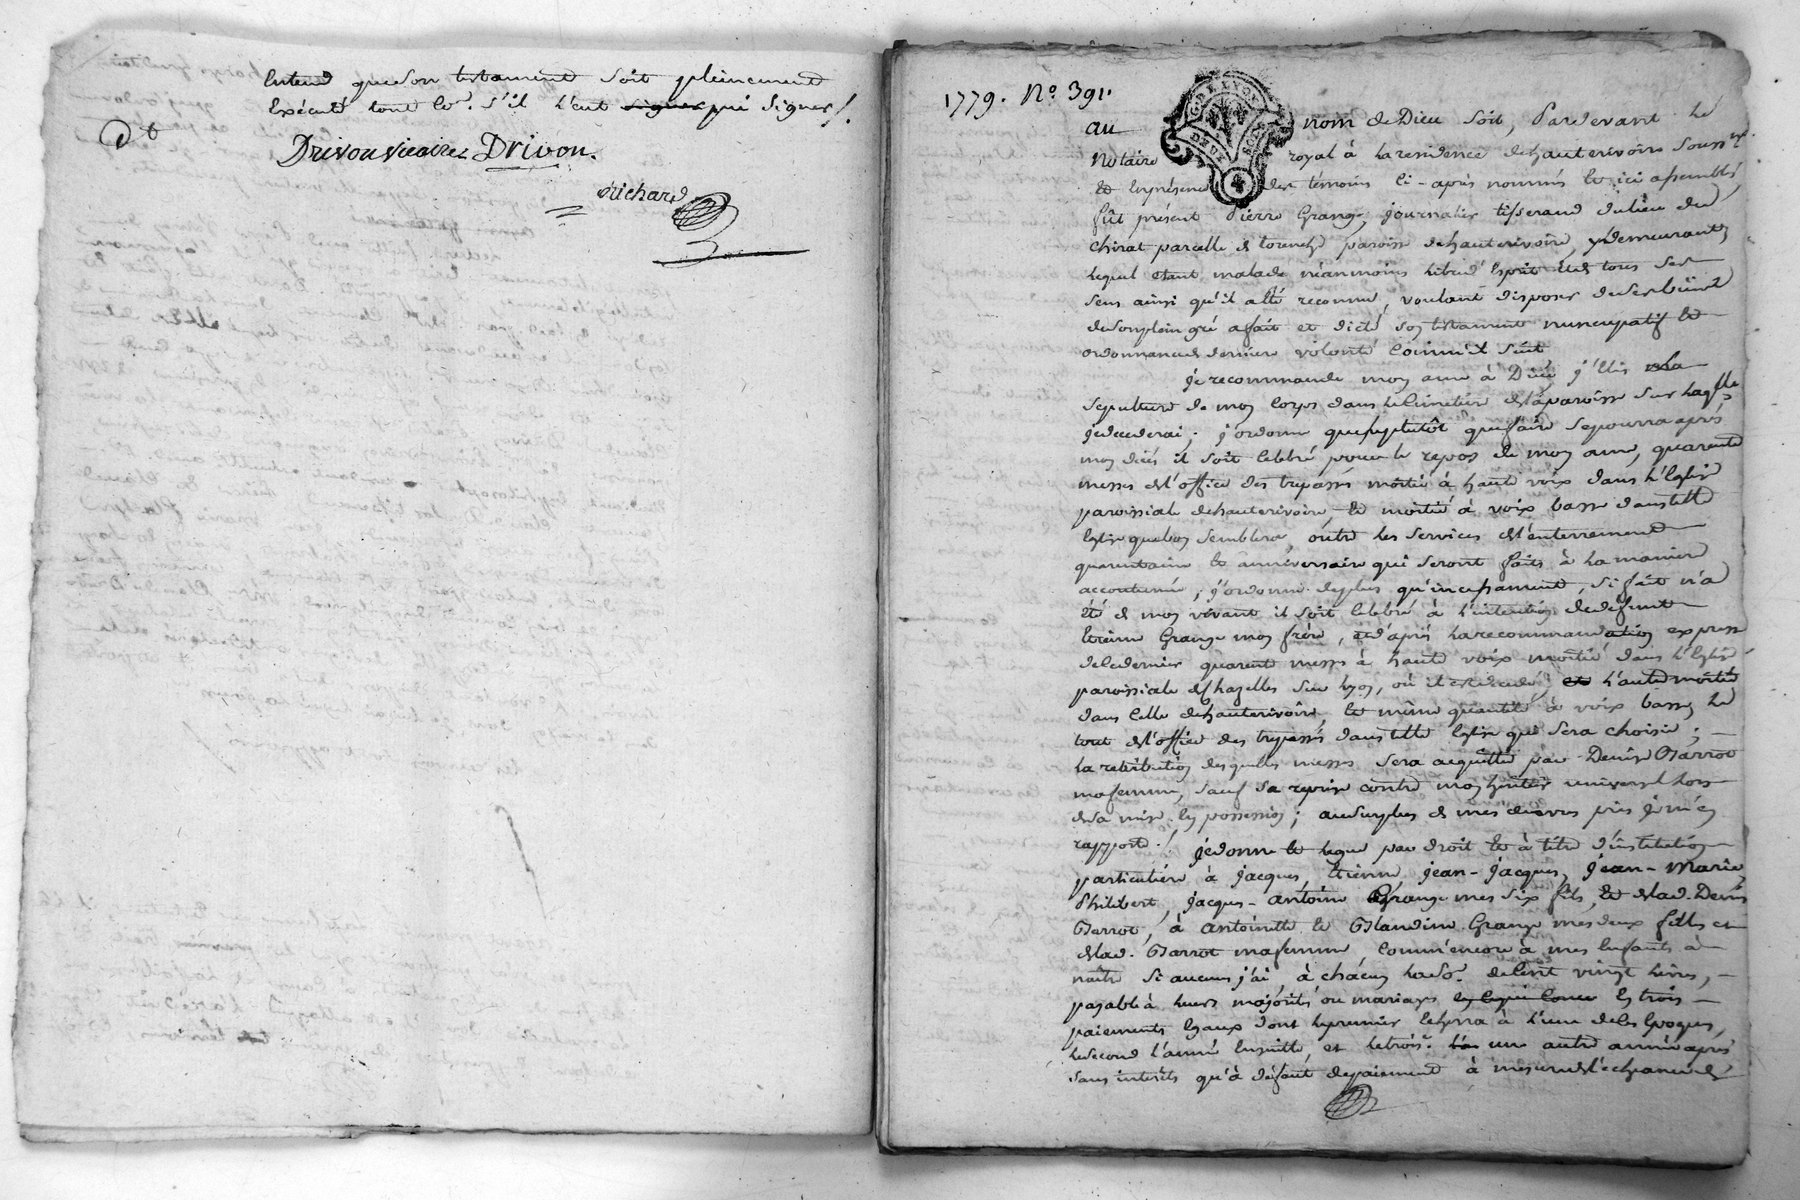 Entend que son testament soit pleinement
Exécuté tout le c.r. s'il l'eut signer pui signer /.
Dt
Drivon vicaire Drivon.
Richard
1779. No. 391.
G. DE LYON
DEUX SOLS
au nom de Dieu soit, Pardevant le
Notaire royal à la residence dehauterivoire Souss.né
et En présence des témoins Ci-après nommés et ici assemblés,
fût présent Pierre Grange, journalier tisserand dulieu du
Chirat parcelle de tourenche, paroisse dehauterivoire, y demeurant,
lequel étant malade néanmoins libre d'Esprit et de tous ses
sens ainsi qu'il a été reconnu, voulant disposer de ses biens
de son plein gré a fait et dicté son testament nuncupatif et
ordonnance de derniere volonté Comm'il suit
je recommande mon ame à Dieu j'Elis la
sepulture de mon Corps dans le Cimetiere de la paroisse sur laq.lle
je decederai; j'ordonne que plutôt que faire se pourra après
mon décès il soit Celebré pour le repos de mon ame, quarante
messes de l'office des trepassés moitié à haute voix dans l'Eglise
paroissiale dehauterivoire, et moitié à voix basse dans telle
Eglise que bon semblera, outre les services de l'enterrement
quarantaine et anniversaire qui seront faits à la maniere
accoutumée; j'ordonne de plus qu'incessament, si fait n'a
été de mon vivant il soit Celebré à l'intention de defunt
Etienne Grange mon frere, et d'après la recommandation expresse
de ce dernier quarante messes à haute voix moitié dans l'Eglise
paroissiale de Chazelles sur Lyon, où il est decedé, et l'autre moitié
dans Celle dehauterivoire, et même quantité à voix basse, le
tout de l'office des trepassés dans telle Eglise qui sera choisie;
la retribution desquelles messes sera acquittée par Denise Barrot
ma femme, sauf sa reprise contre mon heritier universel lors
de sa mise En possession; au surplus de mes œuvres pies je m'en
rapporte./. je donne et legue par droit et à titre d'institution
particuliere à Jacques, Etienne, Jean-Jacques, Jean-Marie,
Philibert, Jacques-Antoine Grange mes six fils, et de lad. Denise
Barrot, à Antoinette et Blandine Grange mes deux filles et
de lad. Barrot ma femme Comm'encore à mes Enfants à
naître si aucuns j'ai, à chacun la so.e de Cent vingt livres,
payable à leurs majorités ou mariages En trois
paiements Egaux dont le premier Echerra à l'une de Ces Epoques,
le second l'année Ensuitte, et le trois.e une autre année après
sans interêts qu'à défaut de paiement à mesure de l'echeance de